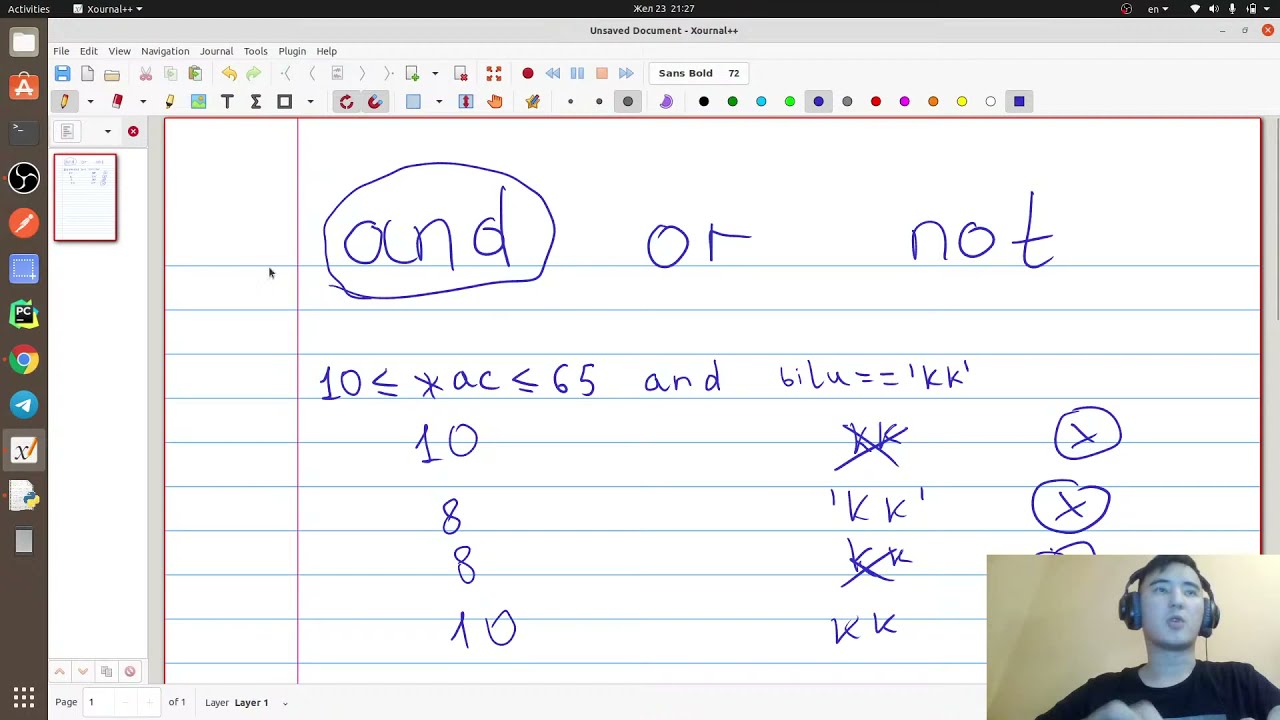 Activities Xournal++ Жел 23 21:27 en
Unsaved Document - Xournal++
File Edit View Navigation Journal Tools Plugin Help
Sans Bold 72
and or not
10 ≤ жас ≤ 65 and bilu=='KK'
10 KK x
8 'KK' x
8 KK
10 KK
Page 1 of 1 Layer Layer 1